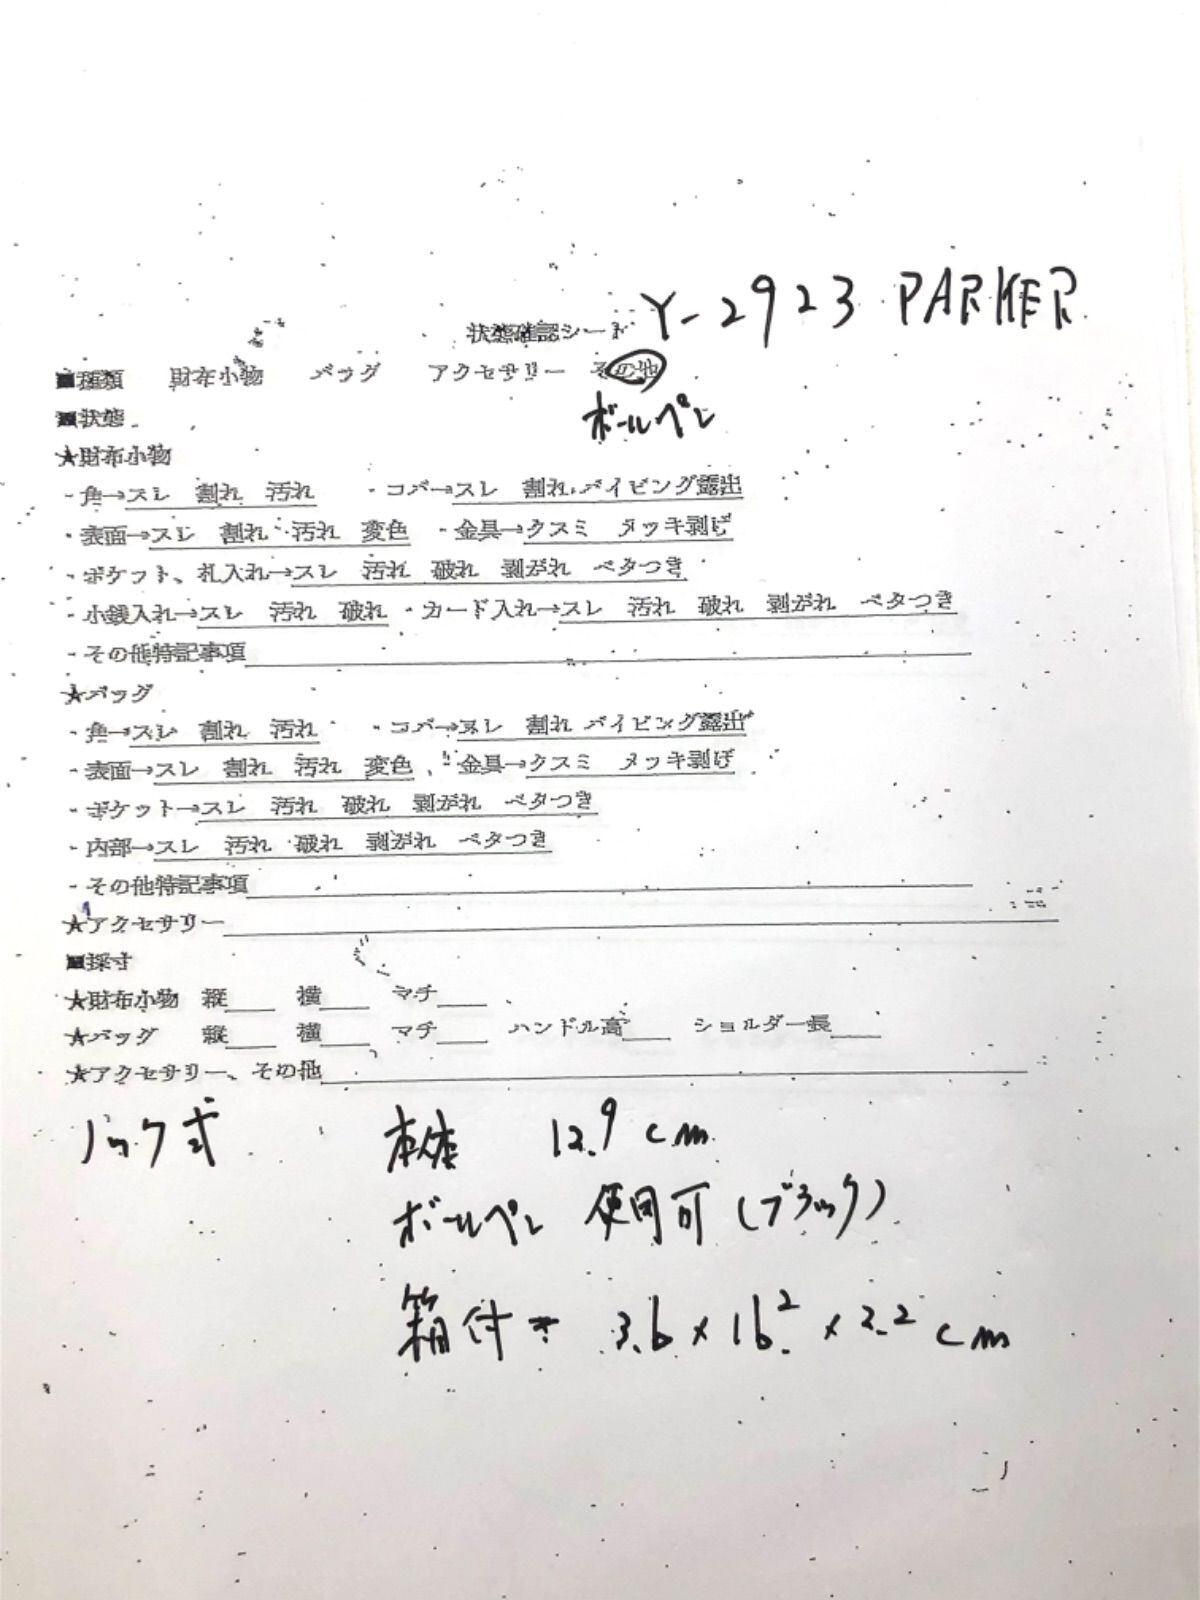 Y-2923 PARKER
状態確認シート
■種類 財布小物 バッグ アクセサリー その他
ボールペン
■状態
★財布小物
・角→スレ 割れ 汚れ ・コバ→スレ 割れ パイピング露出
・表面→スレ 割れ 汚れ 変色 ・金具→クスミ メッキ剥げ
・ポケット、札入れ→スレ 汚れ 破れ 剥がれ ベタつき
・小銭入れ→スレ 汚れ 破れ ・カード入れ→スレ 汚れ 破れ 剥がれ ベタつき
・その他特記事項
★バッグ
・角→スレ 割れ 汚れ ・コバ→スレ 割れ パイピング露出
・表面→スレ 割れ 汚れ 変色 ・金具→クスミ メッキ剥げ
・ポケット→スレ 汚れ 破れ 剥がれ ベタつき
・内部→スレ 汚れ 破れ 剥がれ ベタつき
・その他特記事項
★アクセサリー
■採寸
★財布小物 縦 横 マチ
★バッグ 縦 横 マチ ハンドル高 ショルダー長
★アクセサリー、その他
ノック式 本体 12.9cm
ボールペン 使用可(ブラック)
箱付き 3.6×16.2×2.2cm